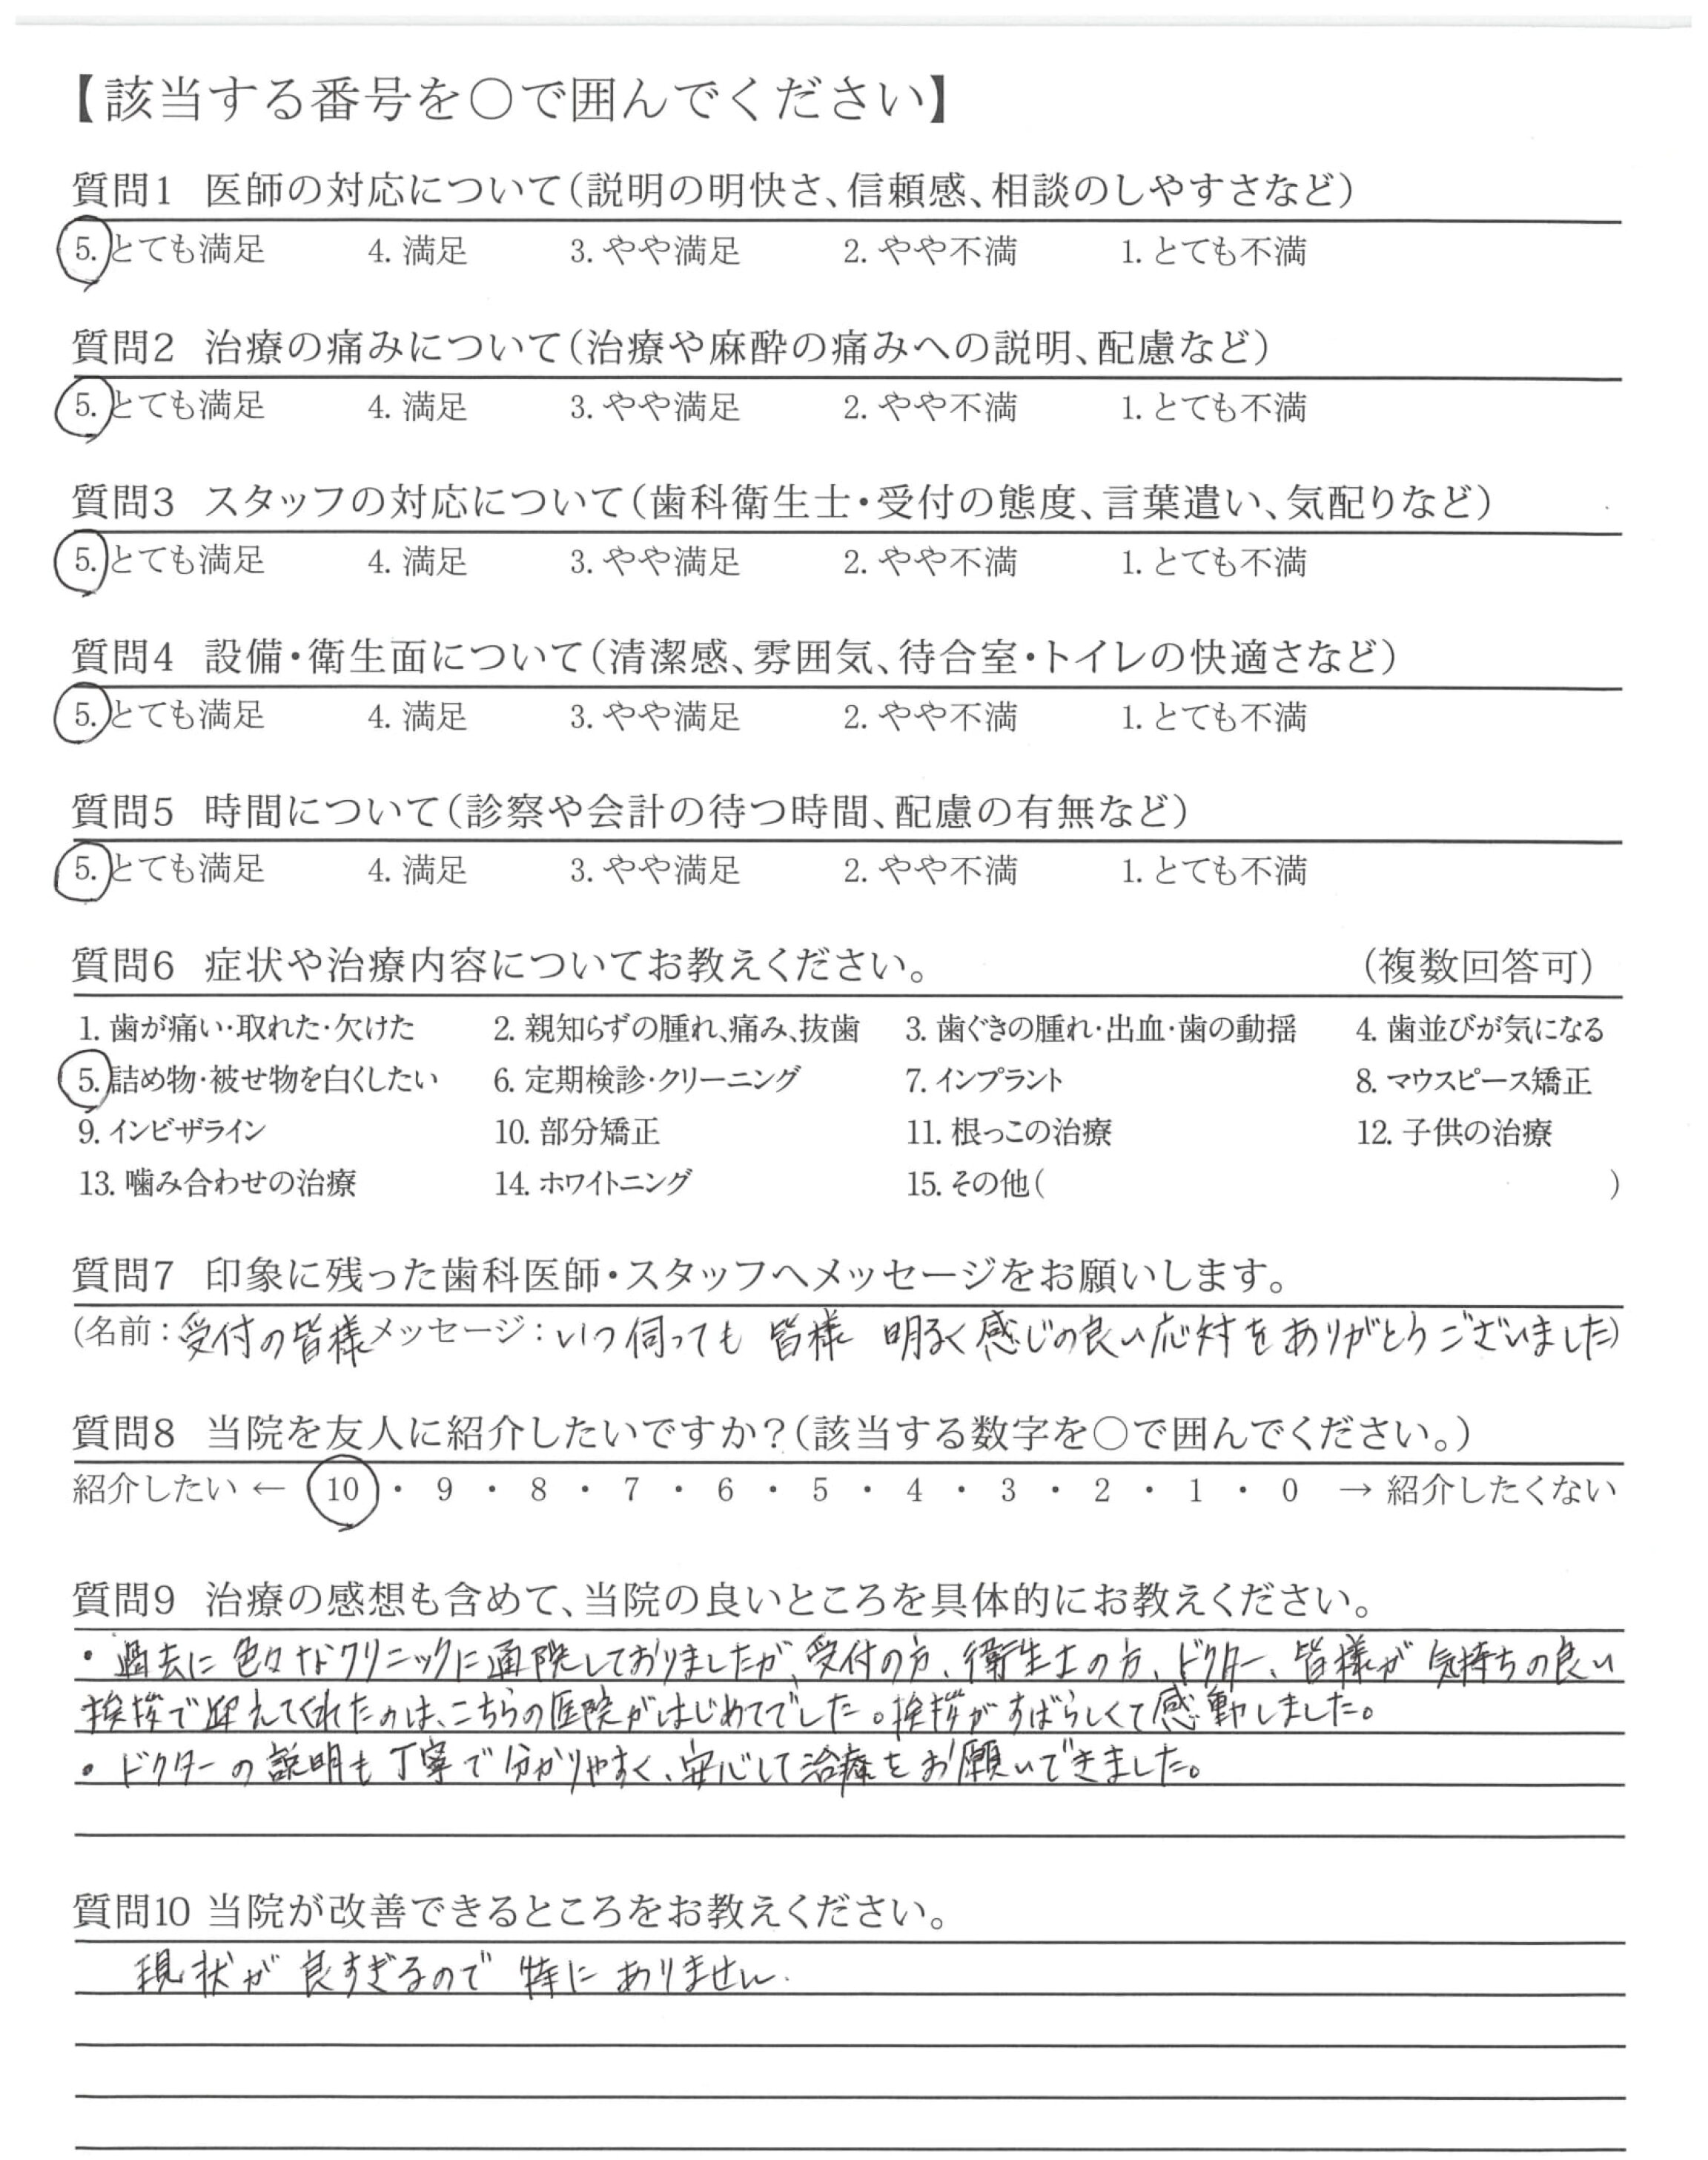 【該当する番号を〇で囲んでください】
質問1 医師の対応について(説明の明快さ、信頼感、相談のしやすさなど)
5. とても満足 4. 満足 3. やや満足 2. やや不満 1. とても不満
質問2 治療の痛みについて(治療や麻酔の痛みへの説明、配慮など)
5. とても満足 4. 満足 3. やや満足 2. やや不満 1. とても不満
質問3 スタッフの対応について(歯科衛生士・受付の態度、言葉遣い、気配りなど)
5. とても満足 4. 満足 3. やや満足 2. やや不満 1. とても不満
質問4 設備・衛生面について(清潔感、雰囲気、待合室・トイレの快適さなど)
5. とても満足 4. 満足 3. やや満足 2. やや不満 1. とても不満
質問5 時間について(診察や会計の待つ時間、配慮の有無など)
5. とても満足 4. 満足 3. やや満足 2. やや不満 1. とても不満
質問6 症状や治療内容についてお教えください。 (複数回答可)
1. 歯が痛い・取れた・欠けた 2. 親知らずの腫れ、痛み、抜歯 3. 歯ぐきの腫れ・出血・歯の動揺 4. 歯並びが気になる
5. 詰め物・被せ物を白くしたい 6. 定期検診・クリーニング 7. インプラント 8. マウスピース矯正
9. インビザライン 10. 部分矯正 11. 根っこの治療 12. 子供の治療
13. 噛み合わせの治療 14. ホワイトニング 15. その他( )
質問7 印象に残った歯科医師・スタッフへメッセージをお願いします。
(名前：受付の皆様 メッセージ：いつ伺っても 皆様 明るく感じの良い応対をありがとうございました)
質問8 当院を友人に紹介したいですか？(該当する数字を〇で囲んでください。)
紹介したい ← 10 ・ 9 ・ 8 ・ 7 ・ 6 ・ 5 ・ 4 ・ 3 ・ 2 ・ 1 ・ 0 → 紹介したくない
質問9 治療の感想も含めて、当院の良いところを具体的にお教えください。
・過去に色々なクリニックに通院しておりましたが、受付の方、衛生士の方、ドクター、皆様が気持ちの良い
挨拶で迎えてくれたのは、こちらの医院がはじめてでした。挨拶がすばらしくて感動しました。
・ドクターの説明も丁寧で分かりやすく、安心して治療をお願いできました。
質問10 当院が改善できるところをお教えください。
現状が良すぎるので 特にありません.